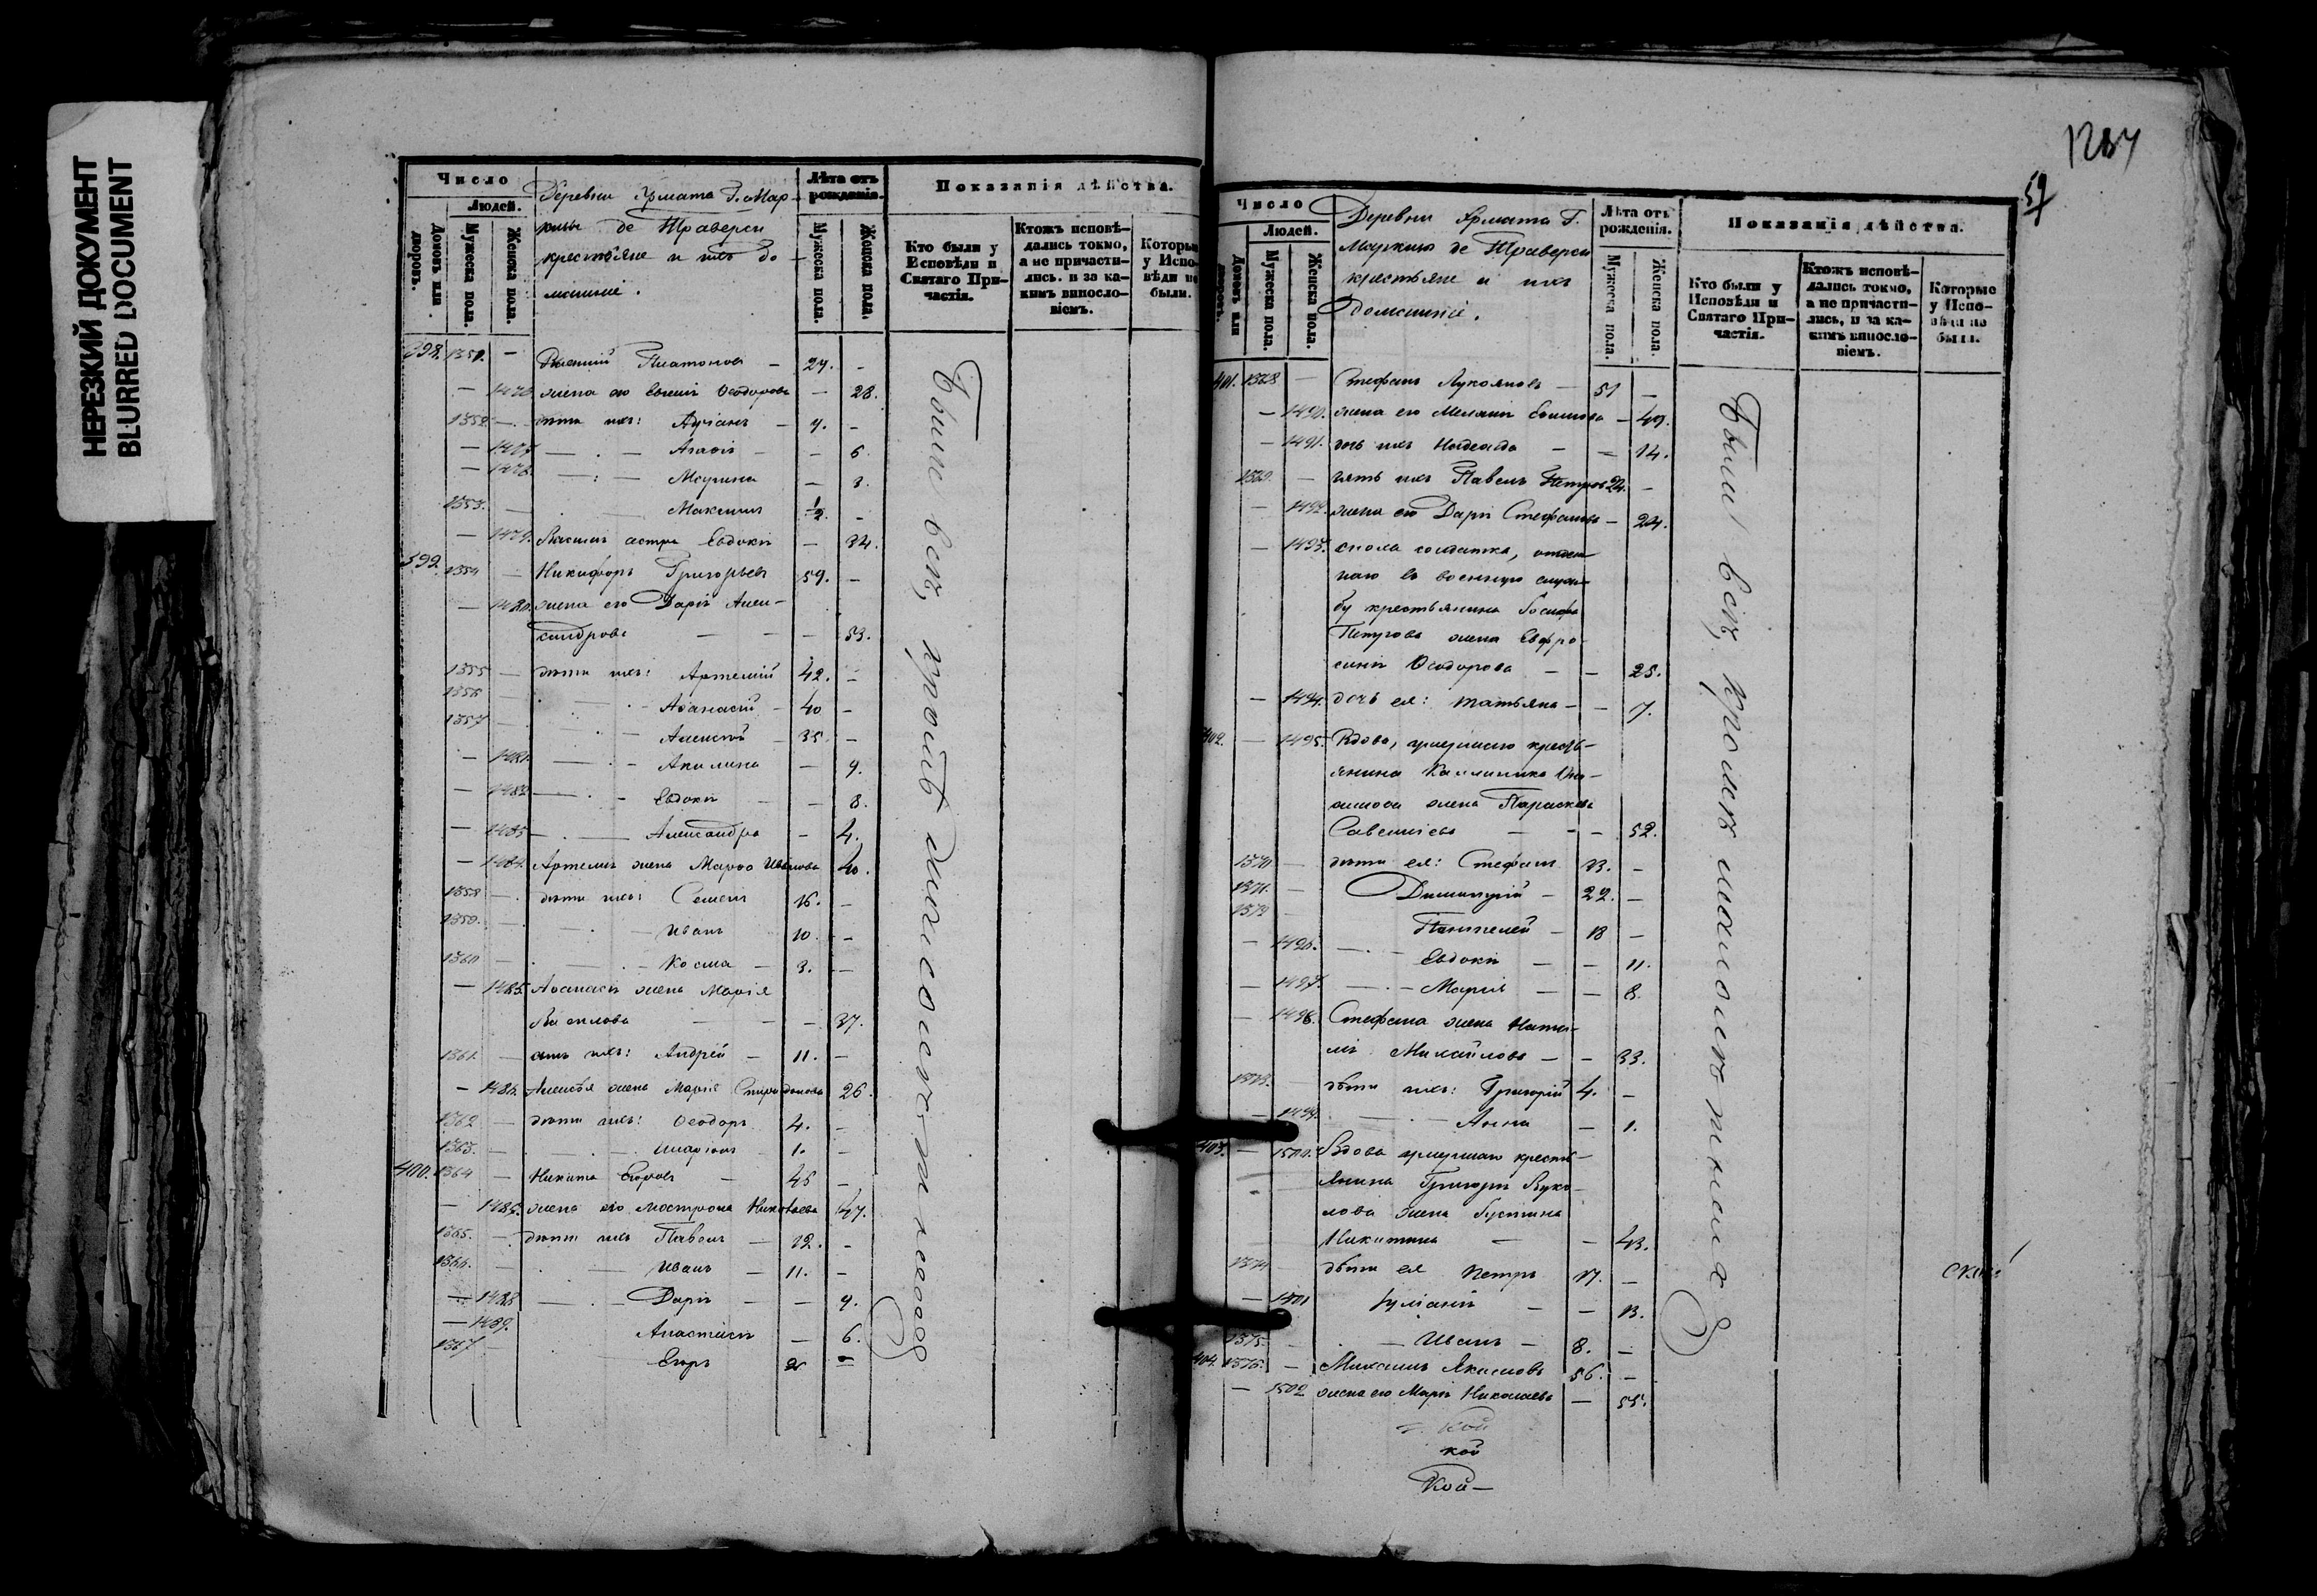 НЕРЕЗКИЙ ДОКУМЕНТ
BLURRED DOCUMENT
Число
Людей.
Домовъ или дворовъ.
Мужеска пола.
Женска пола.
Деревни Ярмата Г. Мар-
киза де Траверси
крестьяне и ихъ до-
машніе.
Лѣта отъ рожденія.
Мужеска пола.
Женска пола.
Показанія дѣйства.
Кто были у Исповѣди и Святаго Причастія.
Ктожъ исповѣдались токмо, а не причастились, и за какимъ винословіемъ.
Которые у Исповѣди не были.
398. 1351. — Платоновъ — 29. —
— жена его Ѳеодорова — 28.
1352. — дѣти ихъ: — 9. —
— 1477 — Агаѳія — — 6.
— 1478. — Марина — 3.
1353. — Максимъ ½ —
— 1479. сестра Евдокія — 34.
399. 1354 — Никифоръ Григорьевъ 59. —
— 1480. жена его Дарія Алек-
сандрова — — 53.
1355 — дѣти ихъ: Артемій 42. —
1356 — Аѳанасій — 40 —
1357 — Алексѣй — 35 —
— 1481. — Акилина — 9.
— 1482 — Евдокія — — 8.
— 1483 — Александра — 4.
— 1484. Артемія жена Марѳа Иванова 40.
1358 — дѣти ихъ: Семенъ 16. —
1359. — Иванъ 10. —
1360 — Косма — 3. —
— 1485. Аѳанасія жена Марія
— — 37.
1361. — сынъ ихъ: Андрей — 11. —
— 1486. Алексѣя жена Марія Спиридонова 26.
1362 — дѣти ихъ: Ѳеодоръ 4. —
1363. — Иларіонъ 1. —
400. 1364 — Никита Егоровъ — 45 —
— жена его Николаева 47.
1365. — дѣти ихъ Павелъ — 12. —
1366. — Иванъ — 11. —
— 1488 — Дарія — — 9.
— 1489. Анастасія — 6.
1367 — Егоръ 2 —
Были всѣ, кромѣ
1284
57
Число
Людей.
Домовъ или дворовъ.
Мужеска пола.
Женска пола.
Деревни Ярмата Г.
Маркиза де Траверси
крестьяне и ихъ
домашніе.
Лѣта отъ рожденія.
Мужеска пола.
Женска пола.
Показанія дѣйства.
Кто были у Исповѣди и Святаго Причастія.
Ктожъ исповѣдались токмо, а не причастились, и за какимъ винословіемъ.
Которые у Исповѣди не были.
401. 1368 — Стефанъ Лукояновъ — 51 —
— 1490. жена его Меланія — 49.
— 1491. дочь ихъ Надежда — — 14.
1369. — зять ихъ Павелъ Петровъ 24. —
— 1492. жена его Дарія Стефанова — 24.
— 1493. солдатка,
въ военную служ-
бу крестьянина
Петрова жена Евфро-
синія Ѳеодорова — — 25.
— 1494. дочь ея: Татьяна — — 7.
402. — 1495. Вдова, умершаго кресть-
янина Каллиника
жена Параскева
Савельева — — — 52.
1370 — дѣти ея: Стефанъ 33. —
1371. — Димитрій — 22. —
1372 Пантелей — 18 —
— 1496. — Евдокія — — 11.
— 1497. — Марія — — 8.
— 1498. Стефана жена Ната-
лія Михайлова — — 33.
1373. дѣти ихъ: Григорій 4. —
— 1499. — Анна — 1.
403. — 1500. Вдова умершаго кресть-
янина Григорія Вуко-
лова жена Іустина
Никитина — — 43.
1374 дѣти ея Петръ 17. —
— 1501 Іуліанія — — 13.
1375. — Иванъ — 8. —
404. 1376. — Михаилъ Якимовъ 56. —
— 1502 жена его Марія Николаева — 55.
кой
кой
Кой—
Были всѣ, кромѣ малолѣтнихъ